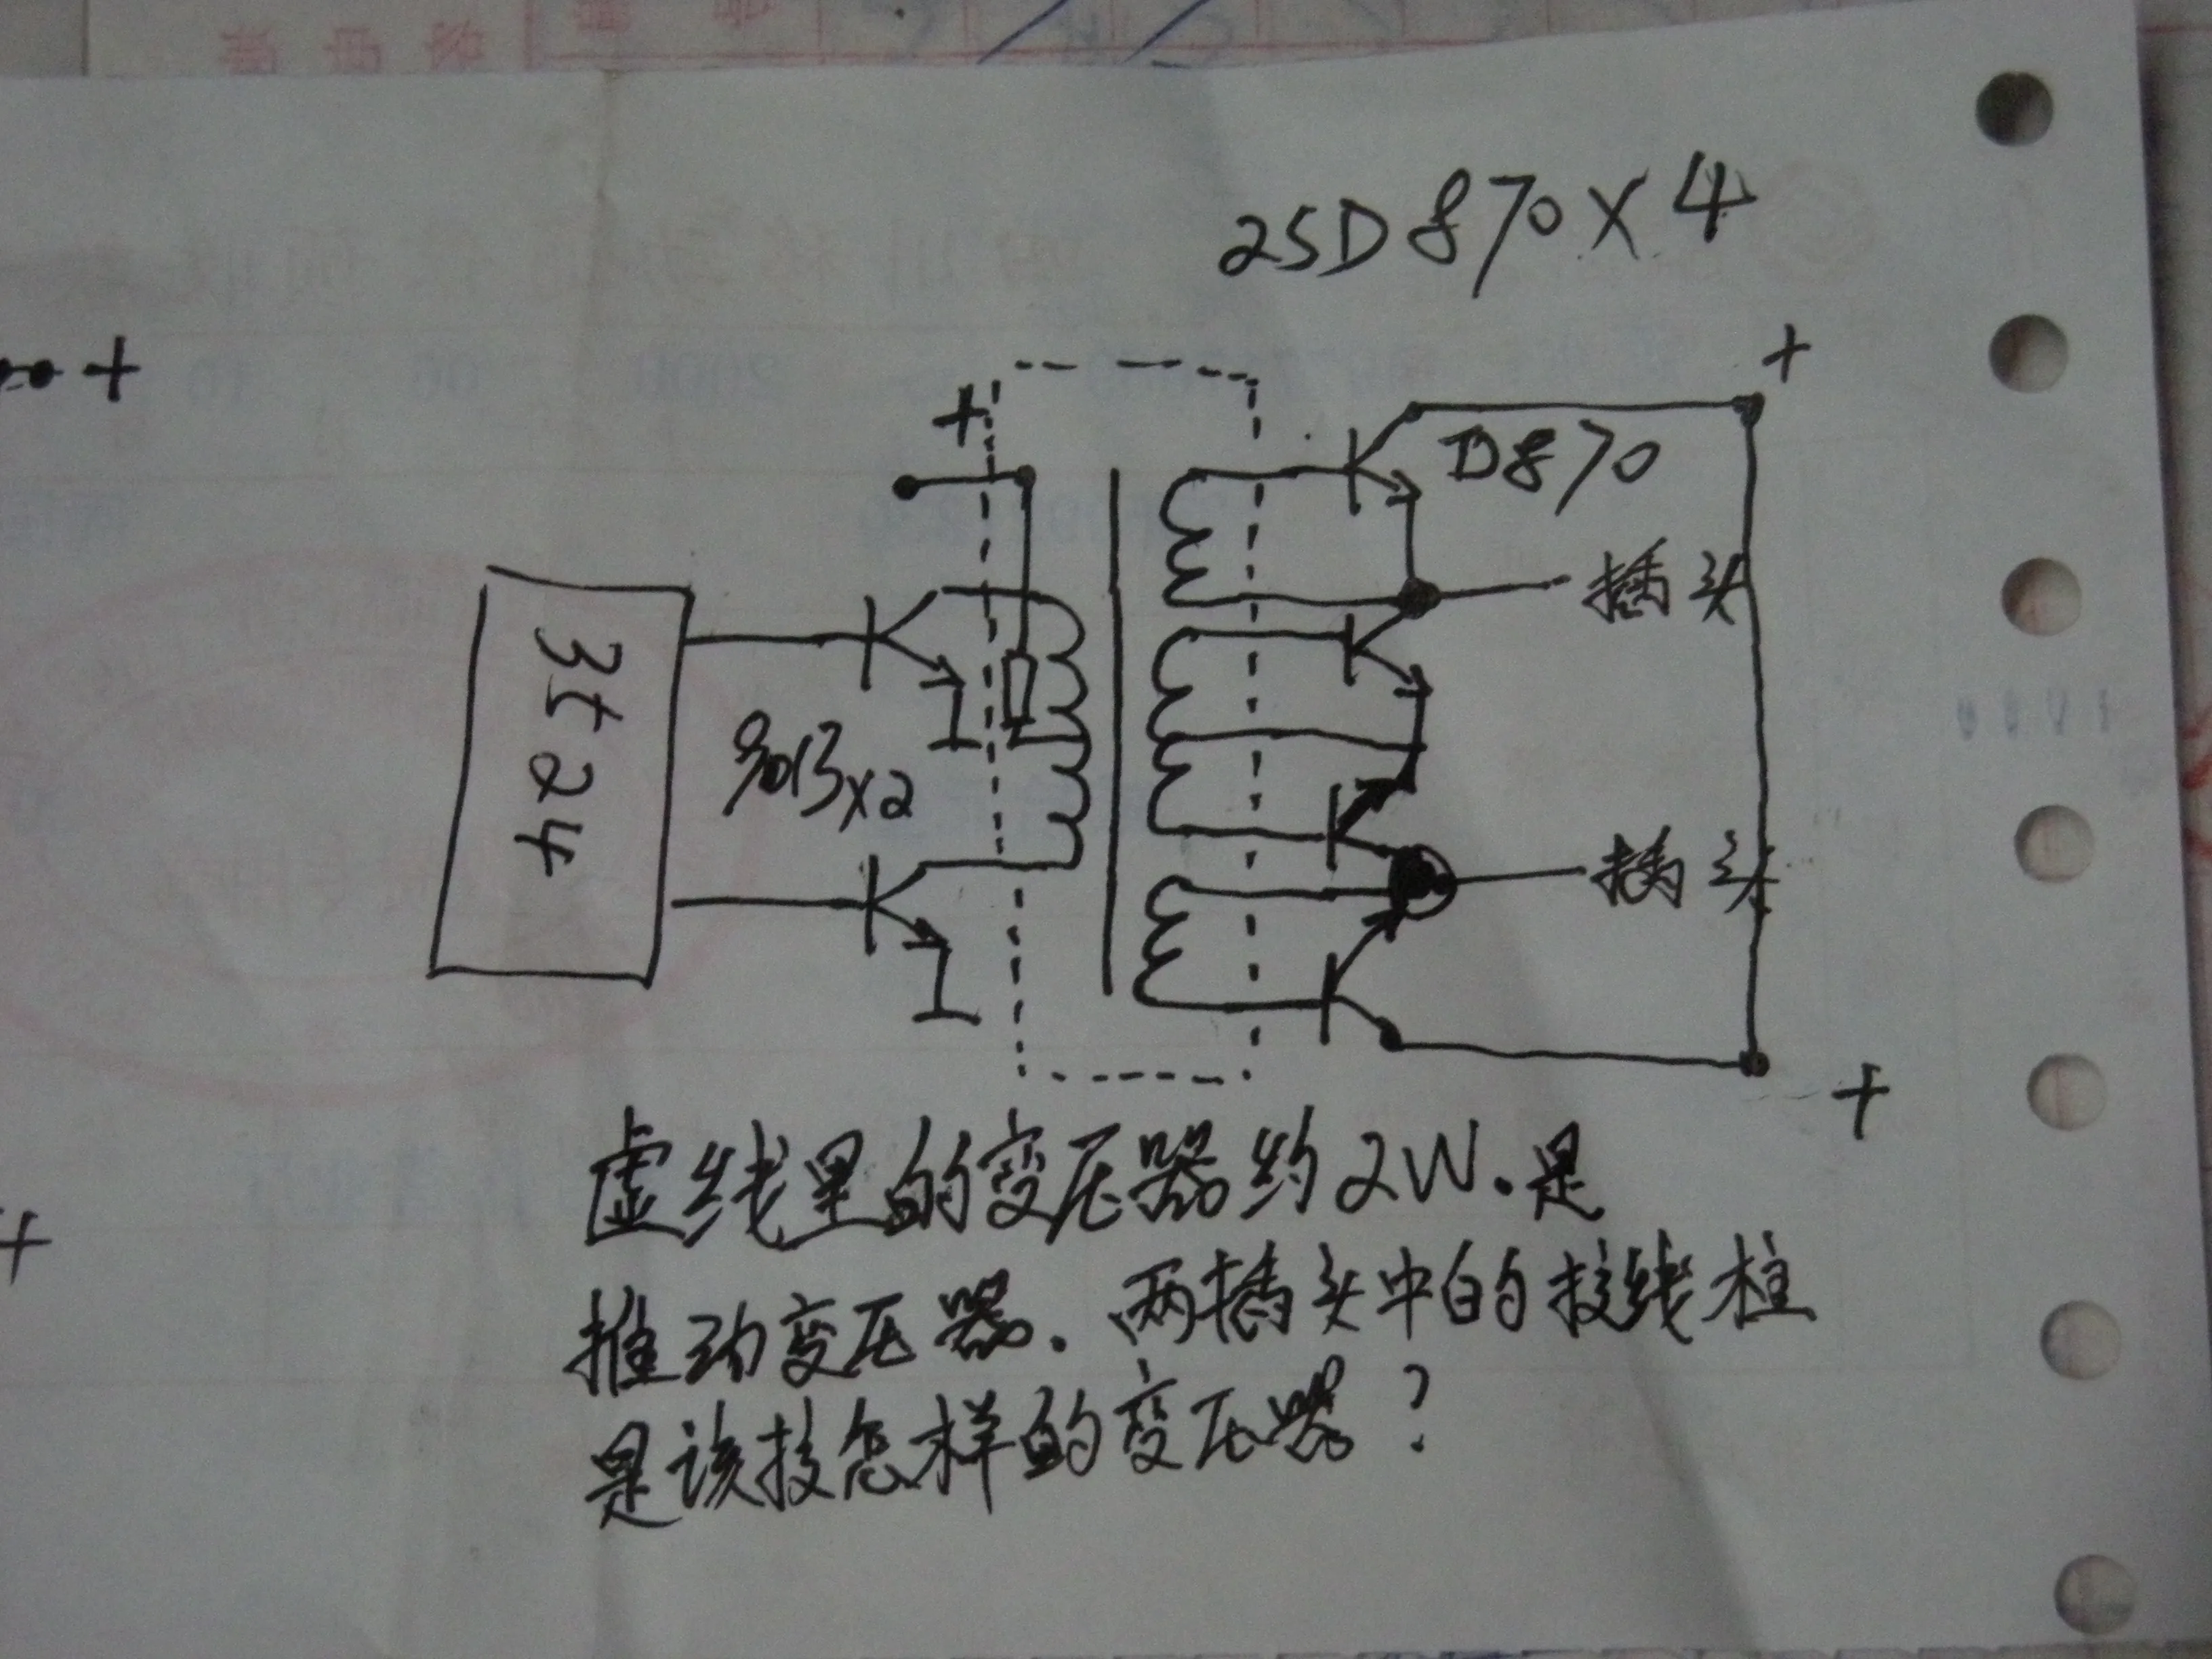 2SD870×4
+
+
+
D870
插头
3t24
9013×2
插头
+
+
虚线里的变压器约2W.是
推动变压器.两插头中的接线柱
是该接怎样的变压器?